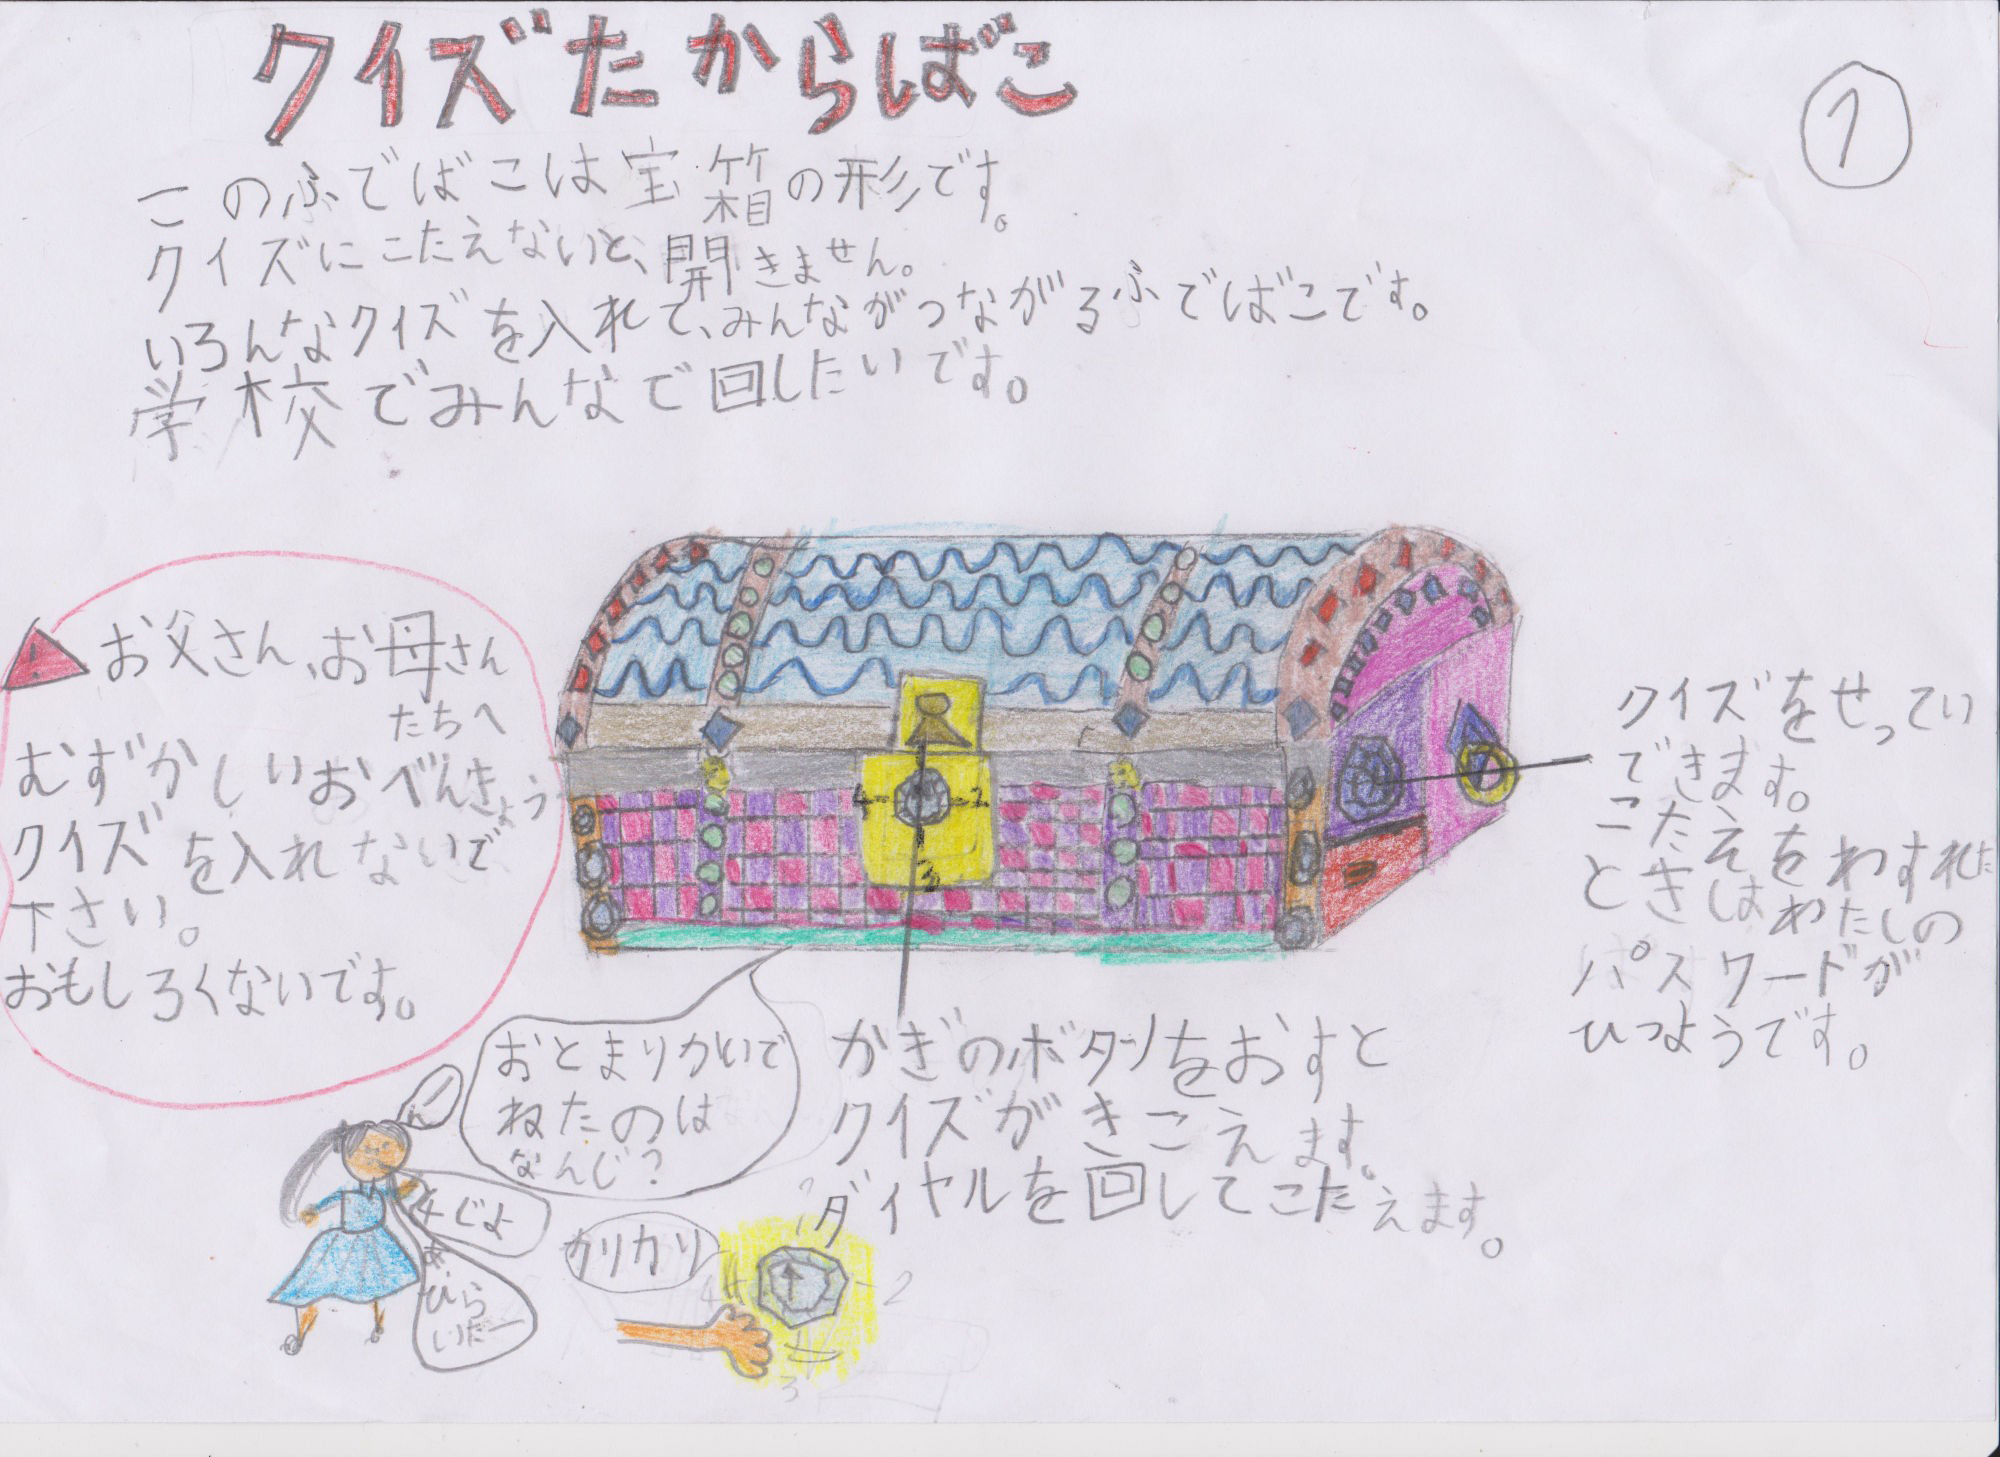 クイズたからばこ
1
このふでばこは宝箱の形です。
クイズにこたえないと、開きません。
いろんなクイズを入れて、みんながつながるふでばこです。
学校でみんなで回したいです。
お父さん、お母さん
たちへ
むずかしいおべんきょう
クイズを入れないで
下さい。
おもしろくないです。
クイズをせってい
できます。
こたえをわすれた
ときはわたしの
パスワードが
ひつようです。
4
2
3
かぎのボタンをおすと
クイズがきこえます。
ダイヤルを回してこたえます。
おとまりかいで
ねたのは
なんじ?
4じよ
あ
ひら
いたー
カリカリ
4
2
3